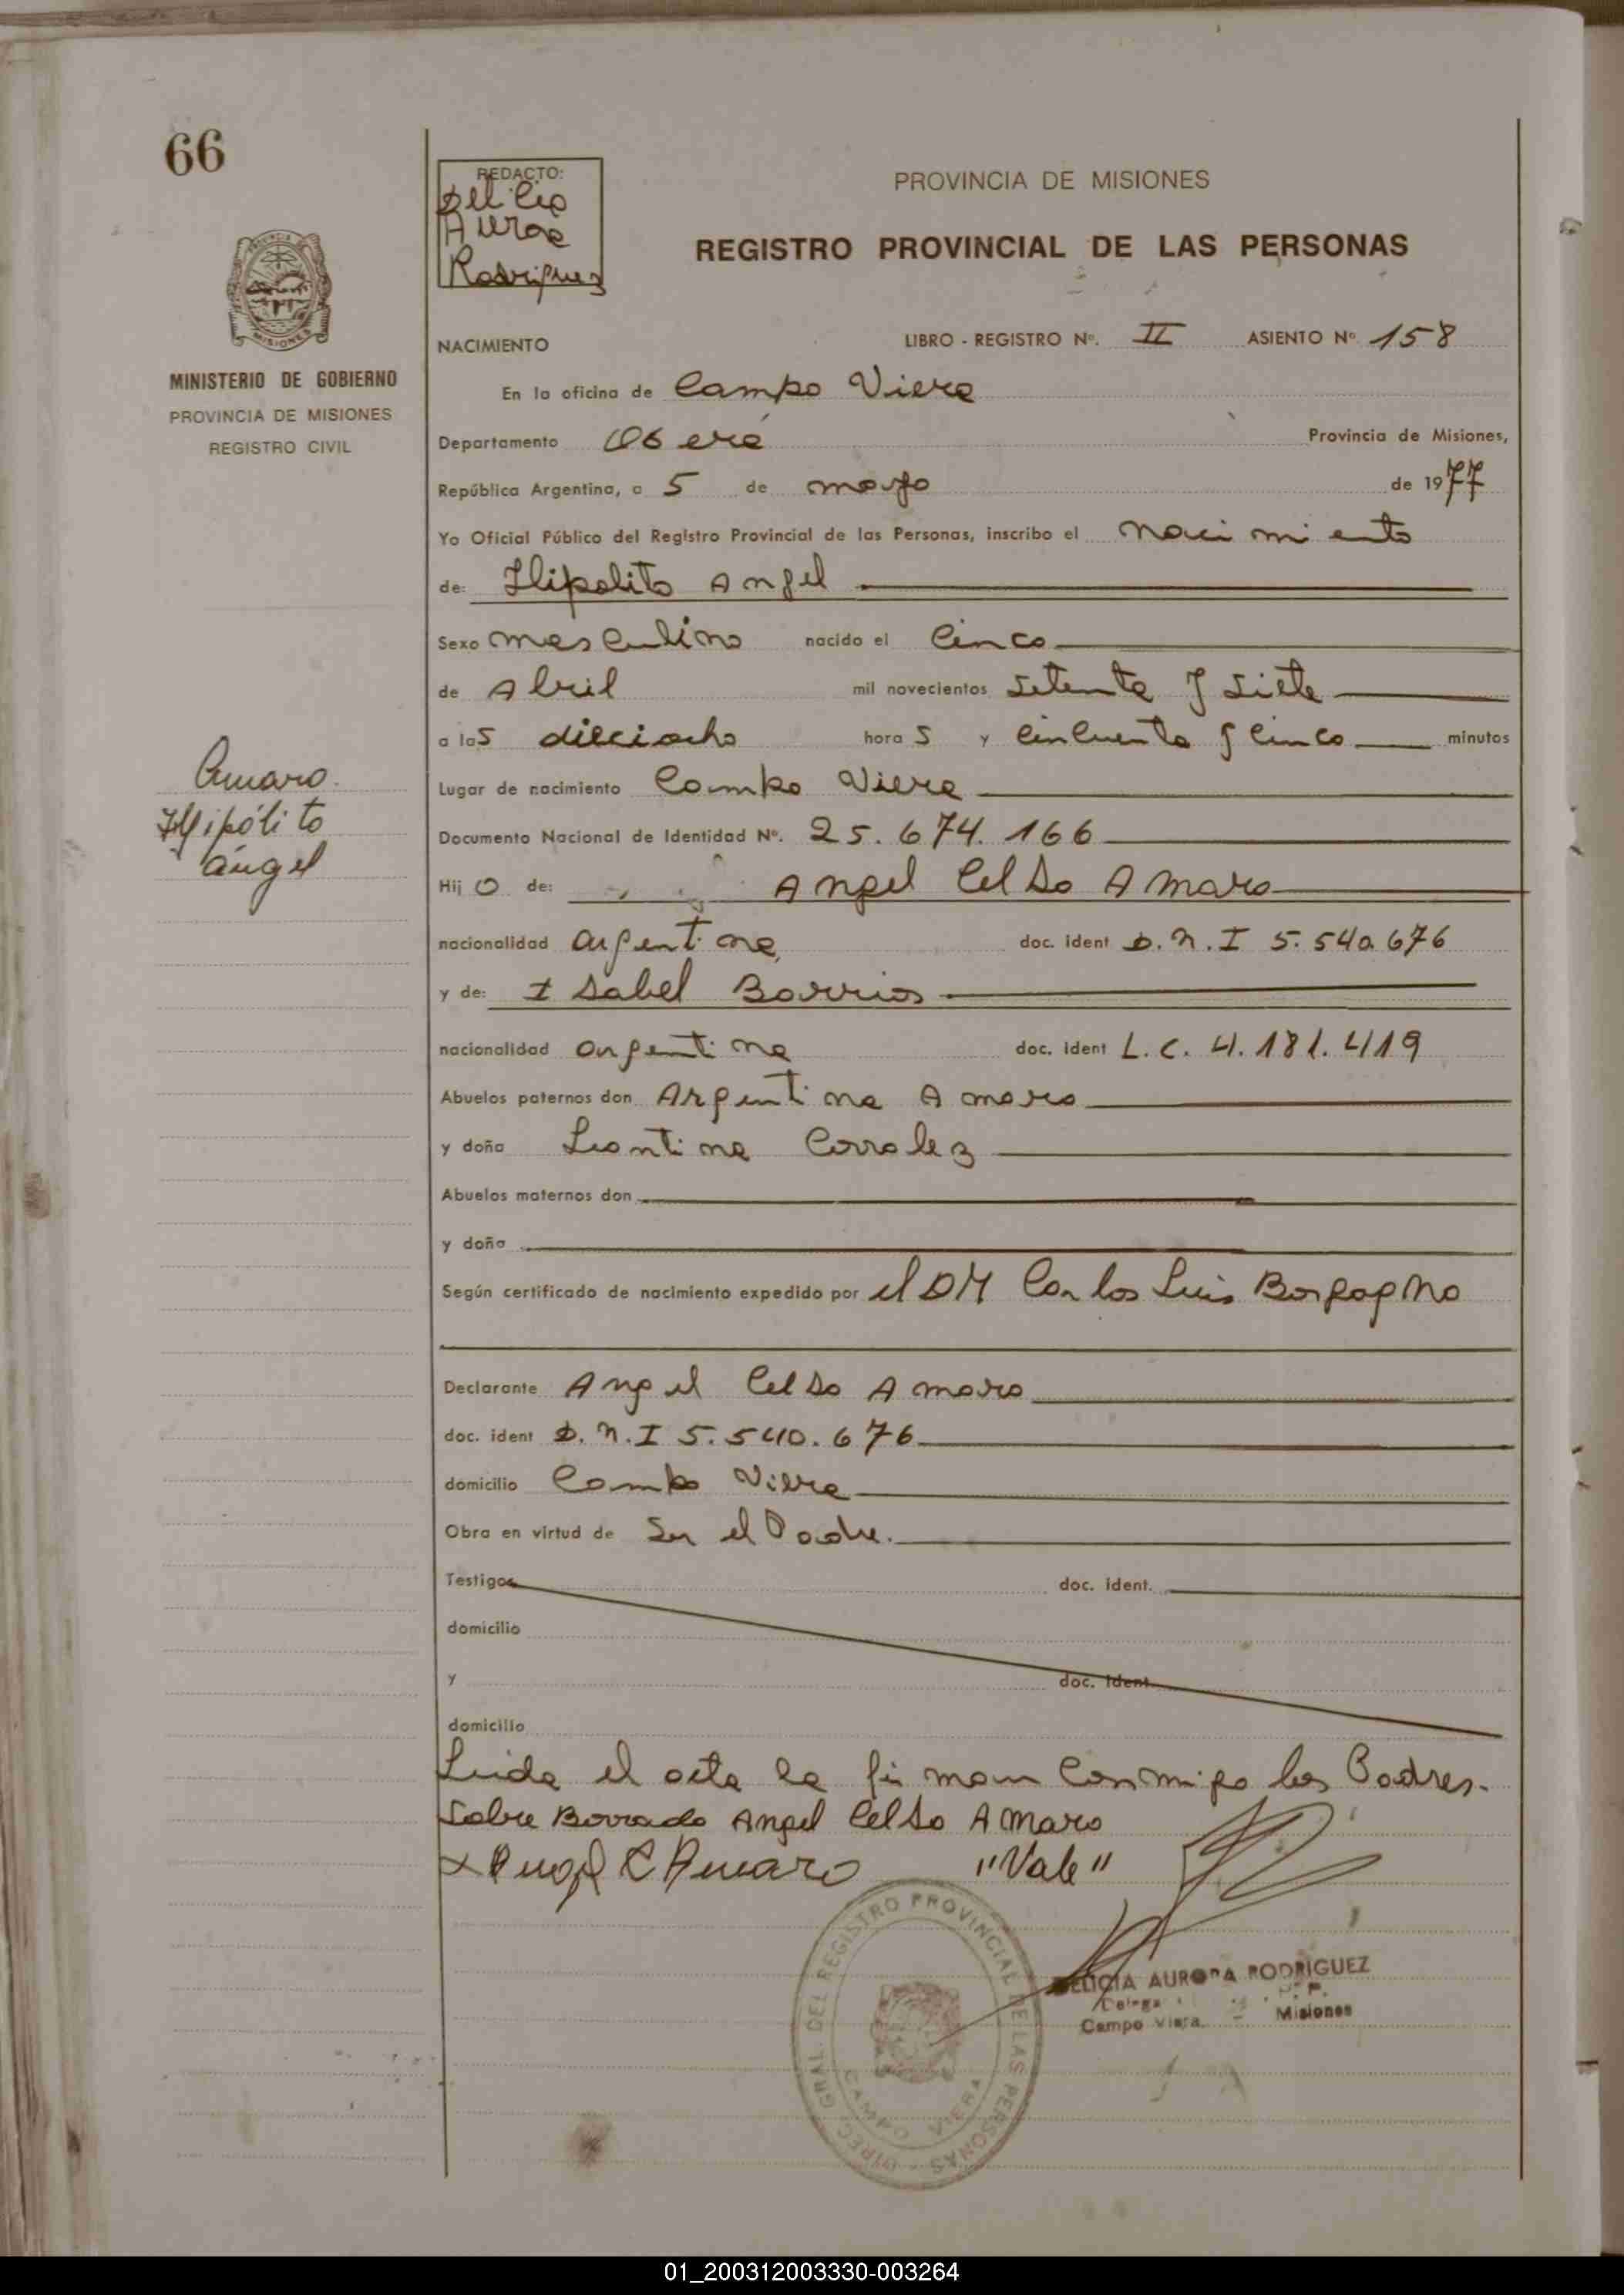 66
REDACTO:
Delicia
Aurora
Rodriguez
PROVINCIA DE MISIONES
REGISTRO PROVINCIAL DE LAS PERSONAS
MINISTERIO DE GOBIERNO
PROVINCIA DE MISIONES
REGISTRO CIVIL
Amaro
Hipólito
ángel
NACIMIENTO LIBRO - REGISTRO Nº. II ASIENTO Nº 158
En la oficina de Campo Viera
Departamento Oberá Provincia de Misiones,
República Argentina, a 5 de mayo de 1977
Yo Oficial Público del Registro Provincial de las Personas, inscribo el nacimiento
de: Hipolito Angel
Sexo masculino nacido el cinco
de Abril mil novecientos setenta y siete
a las dieciocho horas y cincuenta y cinco minutos
Lugar de nacimiento Campo Viera
Documento Nacional de Identidad Nº. 25.674.166
Hijo de: Angel Celso Amaro
nacionalidad argentina doc. ident D.N.I 5.540.676
y de: Isabel Barrios
nacionalidad argentina doc. ident L.C. 4.181.419
Abuelos paternos don Argentina Amaro
y doña Leontina Corralez
Abuelos maternos don
y doña
Según certificado de nacimiento expedido por el DM Carlos Luis Borgogno
Declarante Angel Celso Amaro
doc. ident D.N.I 5.540.676
domicilio Campo Viera
Obra en virtud de Ser el Padre.
Testigos doc. ident.
domicilio
y doc. ident.
domicilio
Leida el acta la firman conmigo los Padres.
Sobre Borrado Angel Celso Amaro
x Angel C Amaro "Vale"
DIREC. GRAL. DEL REGISTRO PROVINCIAL DE LAS PERSONAS
CAMPO VIERA
DELICIA AURORA RODRIGUEZ
Campo Viera Misiones
01_200312003330-003264